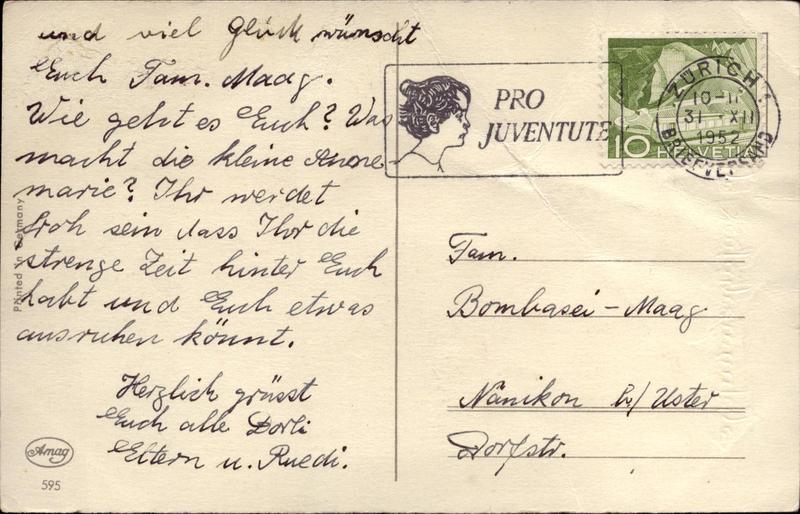 und viel Glück wünscht
Euch Fam. Maag.
Wie geht es Euch? Was
macht die kleine Anne
marie? Ihr werdet
froh sein dass Ihr die
strenge Zeit hinter Euch
habt und Euch etwas
ausruhen könnt.
Herzlich grüsst
Euch alle Dorli
Eltern u. Ruedi.
Printed in Germany
Amag
595
PRO
JUVENTUTE
ZÜRICH 1
10-11
31. XII
1952
BRIEFVERSAND
10 HELVETIA
Fam.
Bombasei-Maag
Nänikon b/ Uster
Dorfstr.